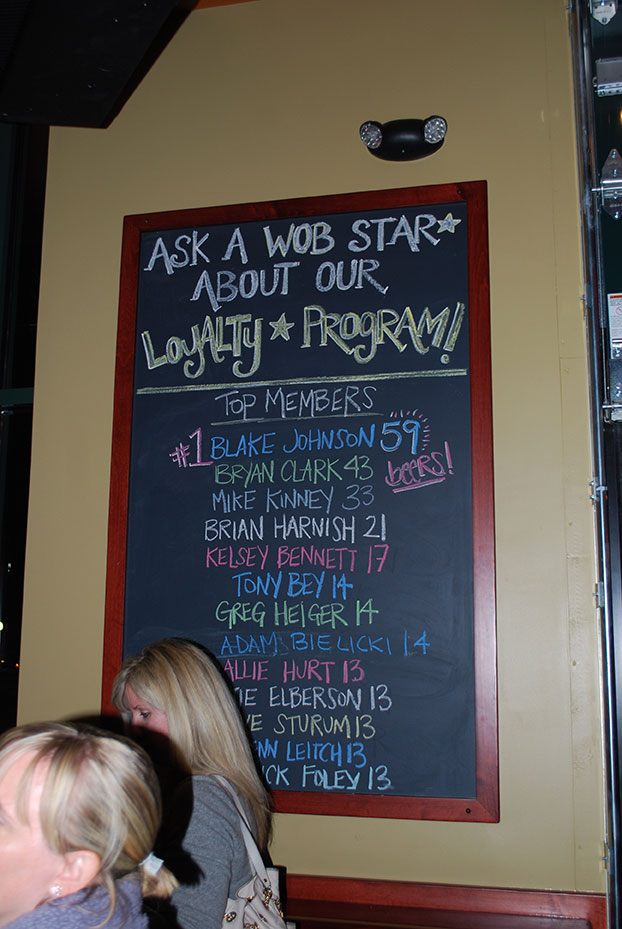 ASK A WOB STAR
ABOUT OUR
LOYALTY PROGRAM!
TOP MEMBERS
#1 BLAKE JOHNSON 59
beers!
BRYAN CLARK 43
MIKE KINNEY 33
BRIAN HARNISH 21
KELSEY BENNETT 17
TONY BEY 14
GREG HEIGER 14
ADAM BIELICKI 14
ALLIE HURT 13
ELBERSON 13
STURUM 13
LEITCH 13
FOLEY 13